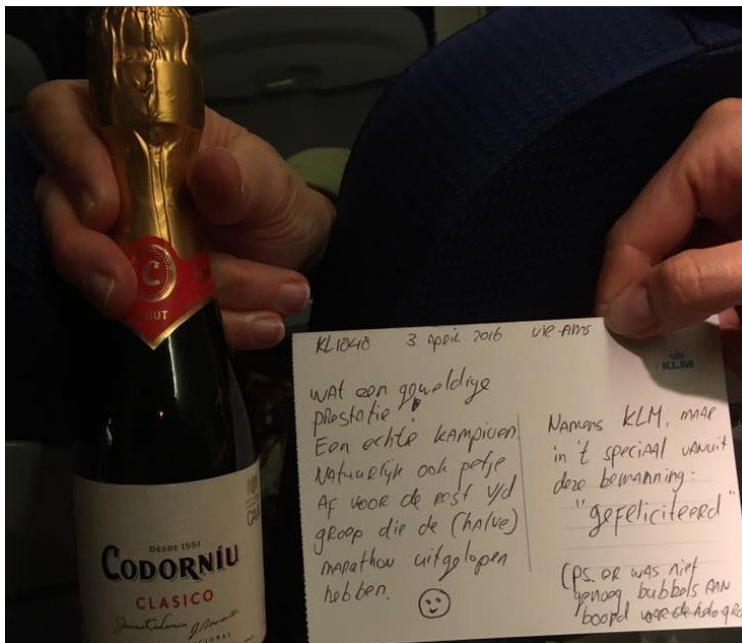 C
DESDE 1551
CODORNÍU
CLASICO
KL1848 3 April 2016 VIE-AMS
KLM
WAT een geweldige
prestatie!
Een echte kampioen.
Natuurlijk ook petje
AF voor de rest v/d
groep die de (halve)
marathon uitgelopen
hebben.
Namens KLM, maar
in 't speciaal vanuit
deze bemanning:
"gefeliciteerd"
(PS. er was niet
genoeg bubbels AAN
boord voor de